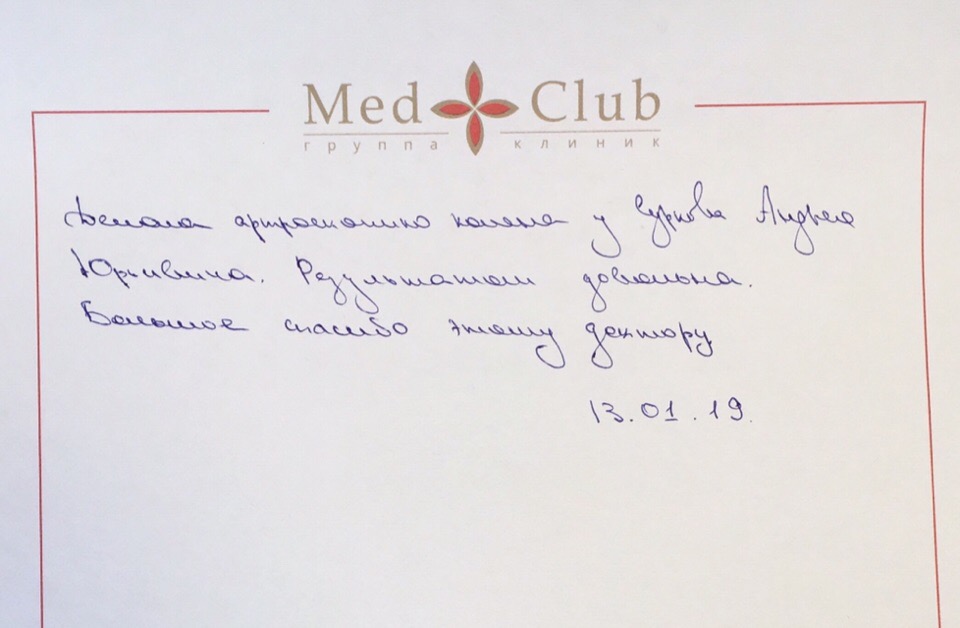 Med Club
группа клиник
Делала артроскопию колена у Чуркова Андрея
Юрьевича. Результатом довольна.
Большое спасибо этому доктору
13.01.19.